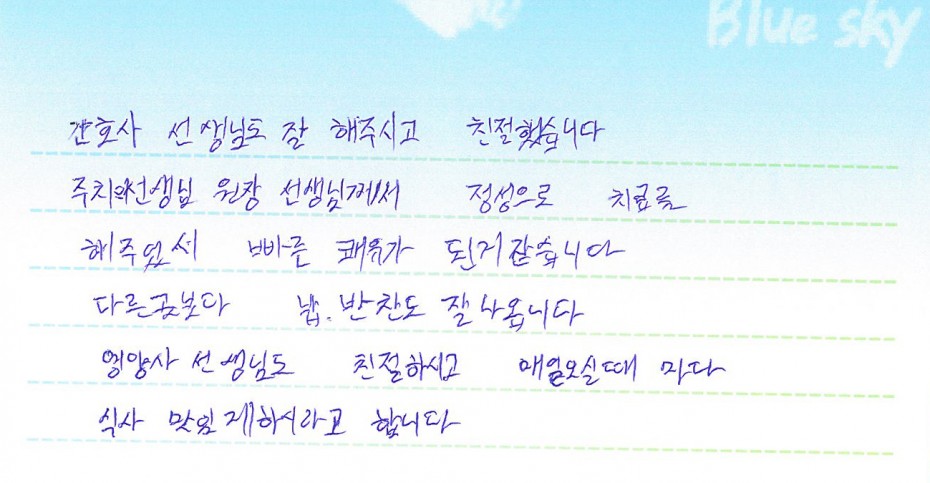 Blue sky
간호사 선생님도 잘 해주시고 친절했습니다
주치의선생님 원장 선생님께서 정성으로 치료를
해주었서 빠른 쾌유가 된거같습니다
다른곳보다 밥.반찬도 잘나옵니다
영양사 선생님도 친절하시고 매일오실때 마다
식사 맛있게하시라고 합니다